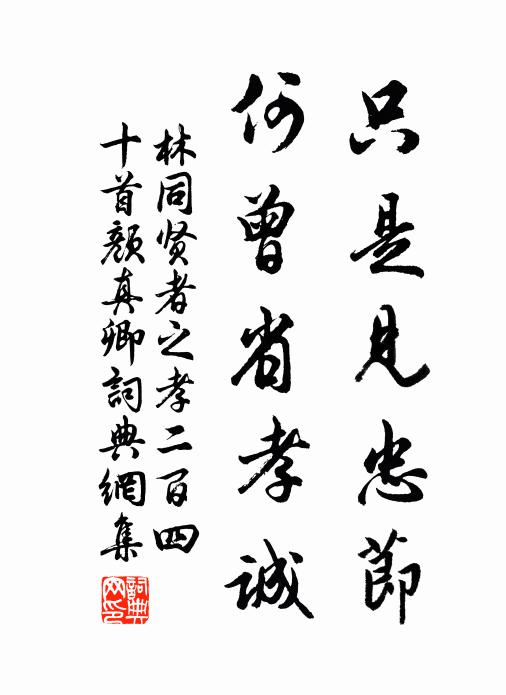 只是見忠節
何曾省孝誠
林同賢者之孝二百四
十首顏真卿詞典網集
詞典
网印